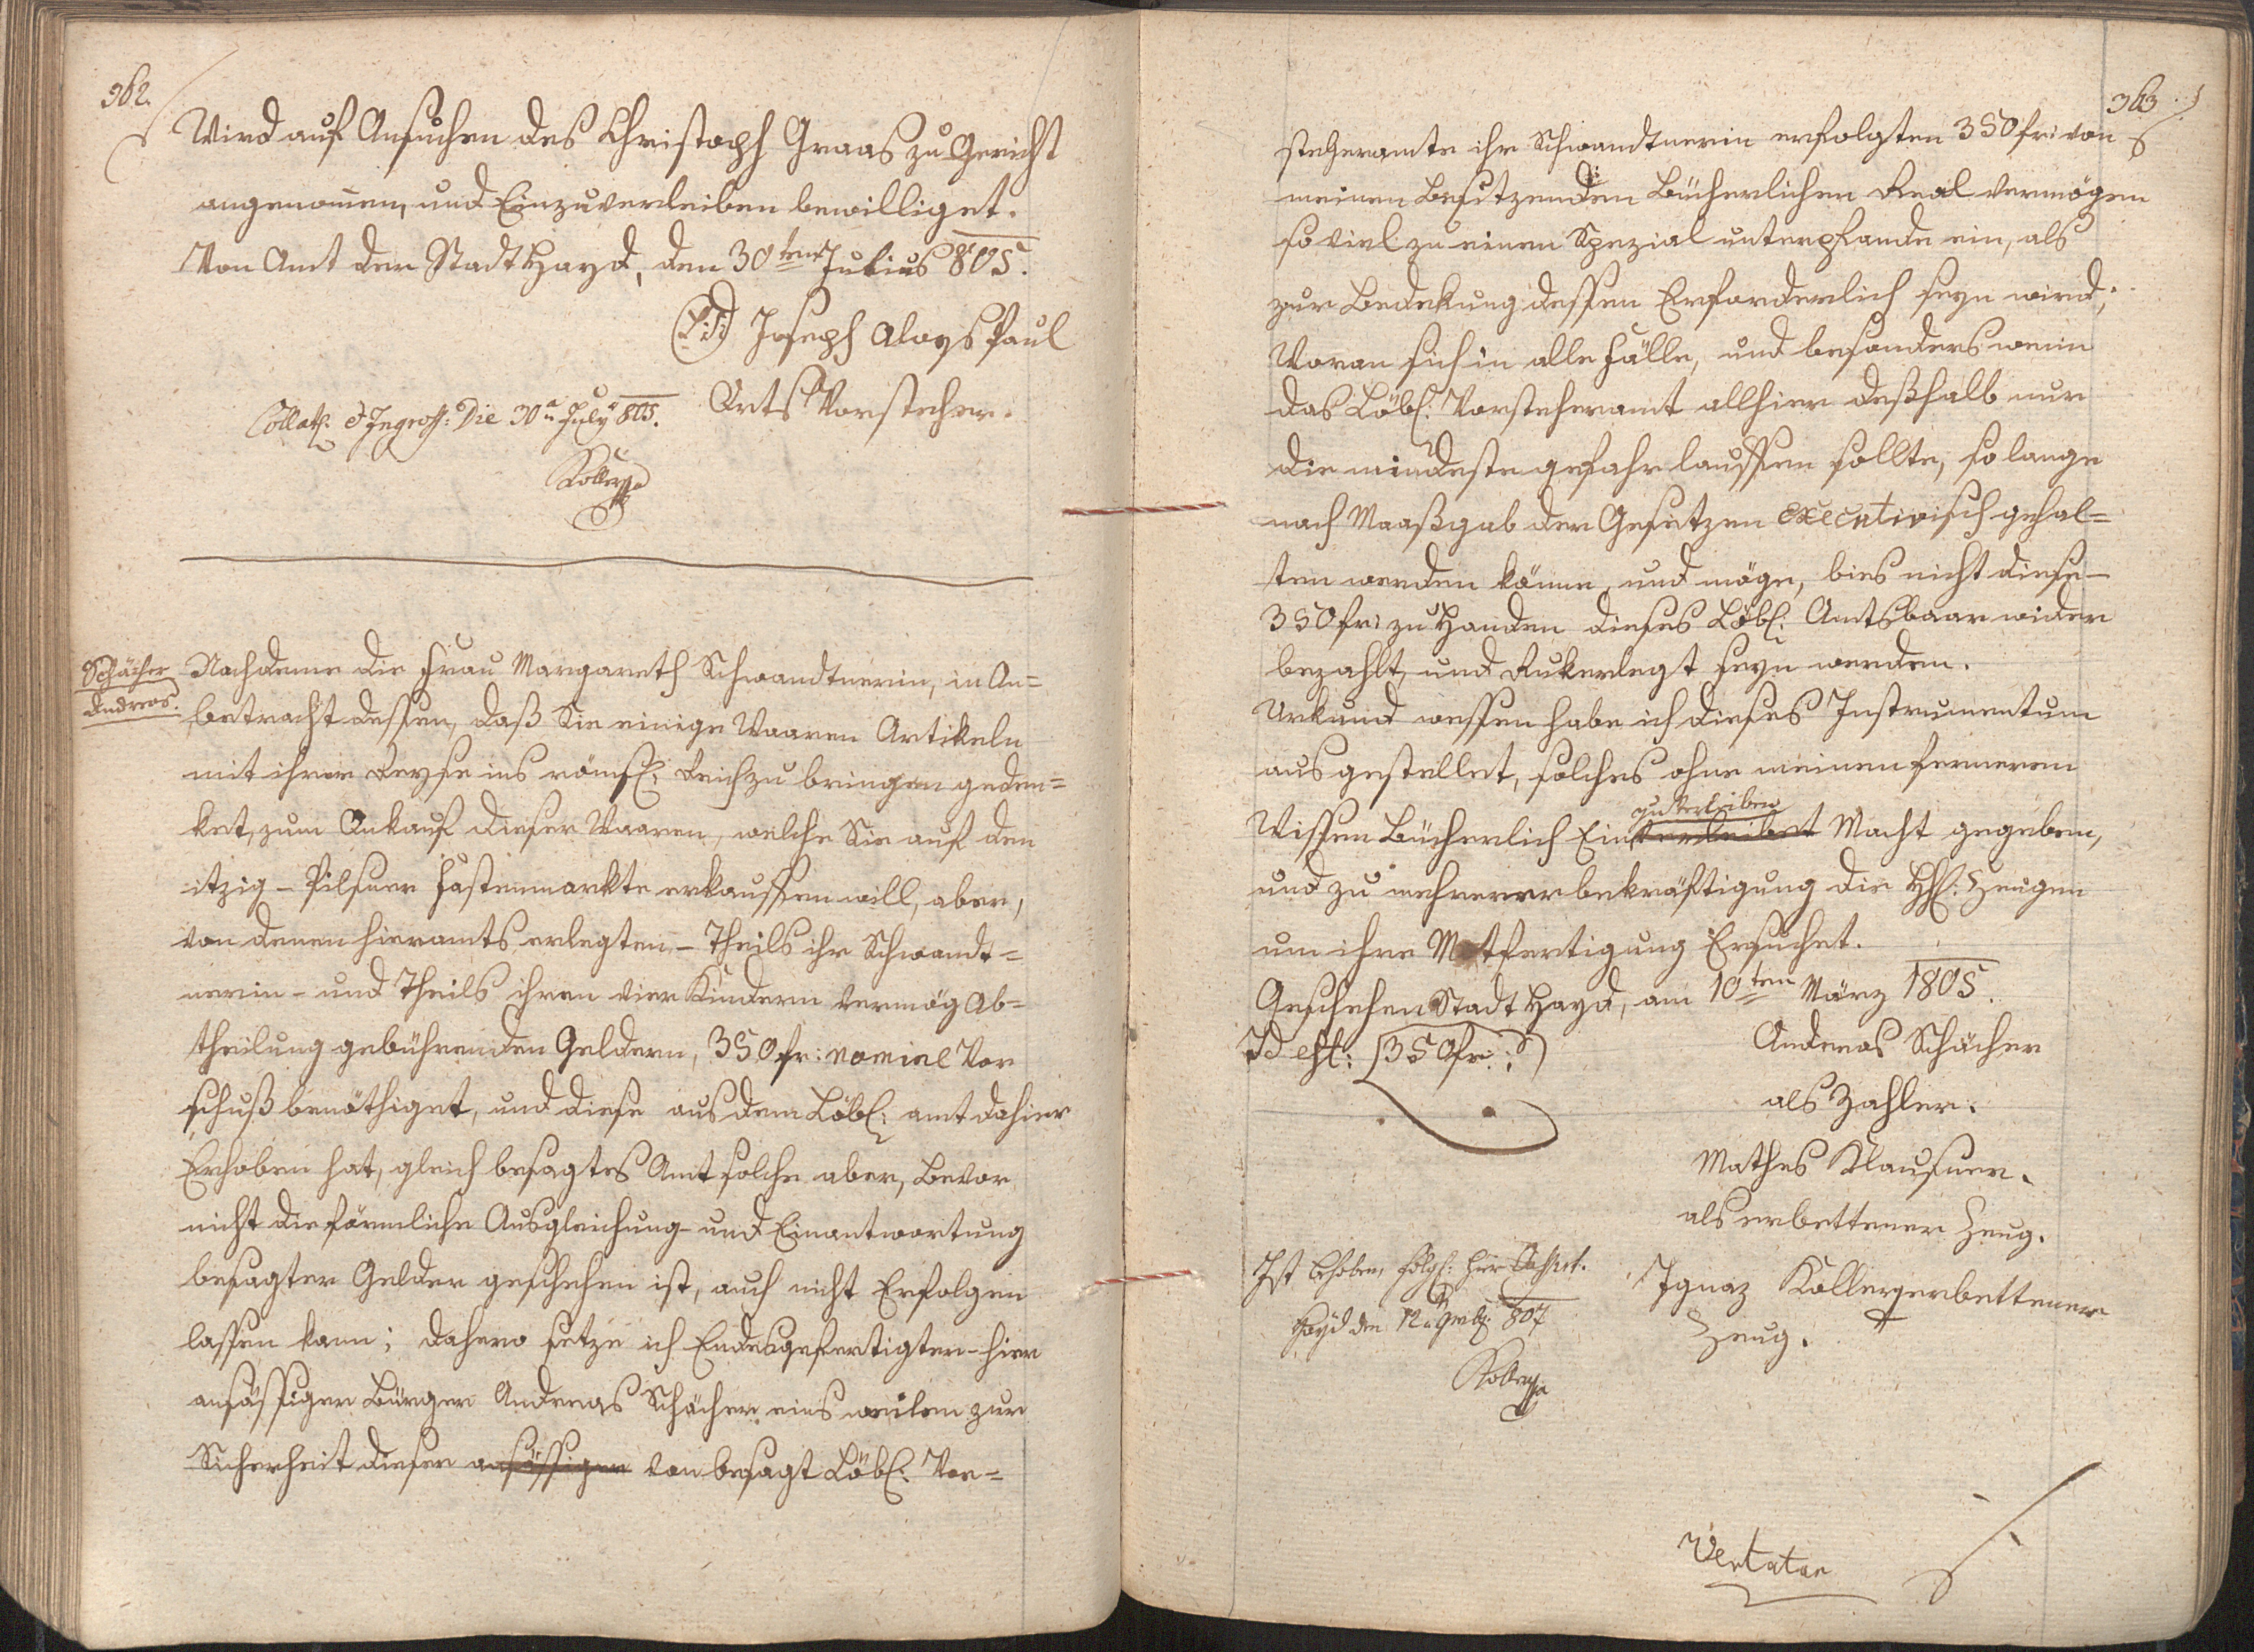 362.
Wird auf Ansuchen des Christoph Graas zu Gericht
angenomen, und Einzuverleiben bewilliget.
Von Amt der Stadt Hayd, den 30ten Julius 805.
(L:S:) Joseph Aloys Paul
Orts Vorsteher.
Collat: et Ingross: Die 30a July 805.
Koller
Schächer
Andreas.
Nachdeme die Frau Margareth Schwandtnerin, in An=
betracht dessen, daß Sie einige Waaren Artikeln
mit ihrer Reyse ins römsch: Reich zu bringen geden=
ket, zum Ankauf dieser Waaren, welche Sie auf den
itzig – Pilsner Fastenmarkte erkauffen will, aber,
von denen hieramts erlegten – Theils ihr Schwandt=
nerin – und Theils ihren vier Kindern vermög Ab=
theilung gebührenden Geldern, 350 fr: nomine Vor
schuß benöthiget, und diese aus dem Löbl: amt dahier
Erhoben hat, gleich besagtes Amt solche aber, bevor
nicht die förmliche Ausgleichung – und Einantwortung
besagter Gelder geschehen ist, auch nicht Erfolgen
lassen kann; dahero setze ich Endesgefertigter – hier
ansässiger Bürger Andreas Schächer eins weilen zur
Sicherheit dieser ansässiger von besagt Löbl: Vor=
363
steheramte ihr Schwandtnerin erfolgten 350 fr: von
meinen besitzenden Bücherlichen Real vermögen
so viel zu einen Spezial unterpfande ein, als
zur Bedekung dessen Erforderlich seyn wird;
Woran sich in alle Fälle, und besonders wenn
das Löbl: Vorsteheramt allhier deßhalb nur
die mindeste gefahr lauffen sollte, so lange
nach Maaßgab der Gesetzen executivisch gehal=
ten werden könne, und möge, bies nicht diese –
350 fr: zu Handen dieses Löbl: Amts baar wider
bezahlt, und Rukerlegt seyn werden.
Urkund wessen habe ich dieses Instrumentum
ausgestellet, solches ohne meinen ferneren
zu Verleiben
Wissen Bücherlich Einverleibet Macht gegeben,
und zu mehrerer bekräftigung die HH: Zeugen
um ihre Mitfertigung Ersuchet.
Geschehen Stadt Hayd, am 10ten März 1805.
Id est: (350 fr:)
Andreas Schächer
als Zahler.
Mathes Klausner.
als erbettener Zeug.
Ignaz Koller erbettener
Zeug.
Ist behoben, folgl: hier Cassirt.
Hayd den 12 9mb: 807
Koller
Vertatur